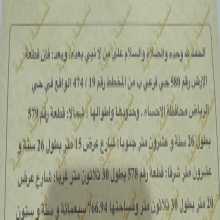 الحمد لله وحده والصلاة والسلام على من لا نبي بعده، وبعد: فان قطعة
الارض رقم 580 حي فرعي ب من المخطط رقم 19 / 474 الواقع في حي
الرياض محافظة الاحساء . وحدودها واطوالها : شمالا: قطعة رقم 579
بطول 26 ستة و عشرون متر جنوبا: شارع عرض 15 متر بطول 26 ستة و
عشرون متر شرقا: قطعة رقم 578 بطول 30 ثلاثون متر غربا: شارع عرض
20 متر بطول 30 ثلاثون متر ومساحتها 766.94 سبعمائة و ستة و ستون